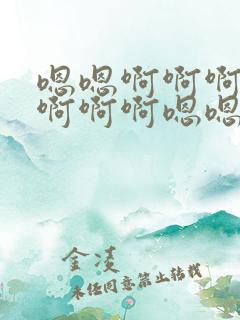 嗯嗯啊啊啊
啊啊啊嗯嗯
金凌
未经同意禁止转载